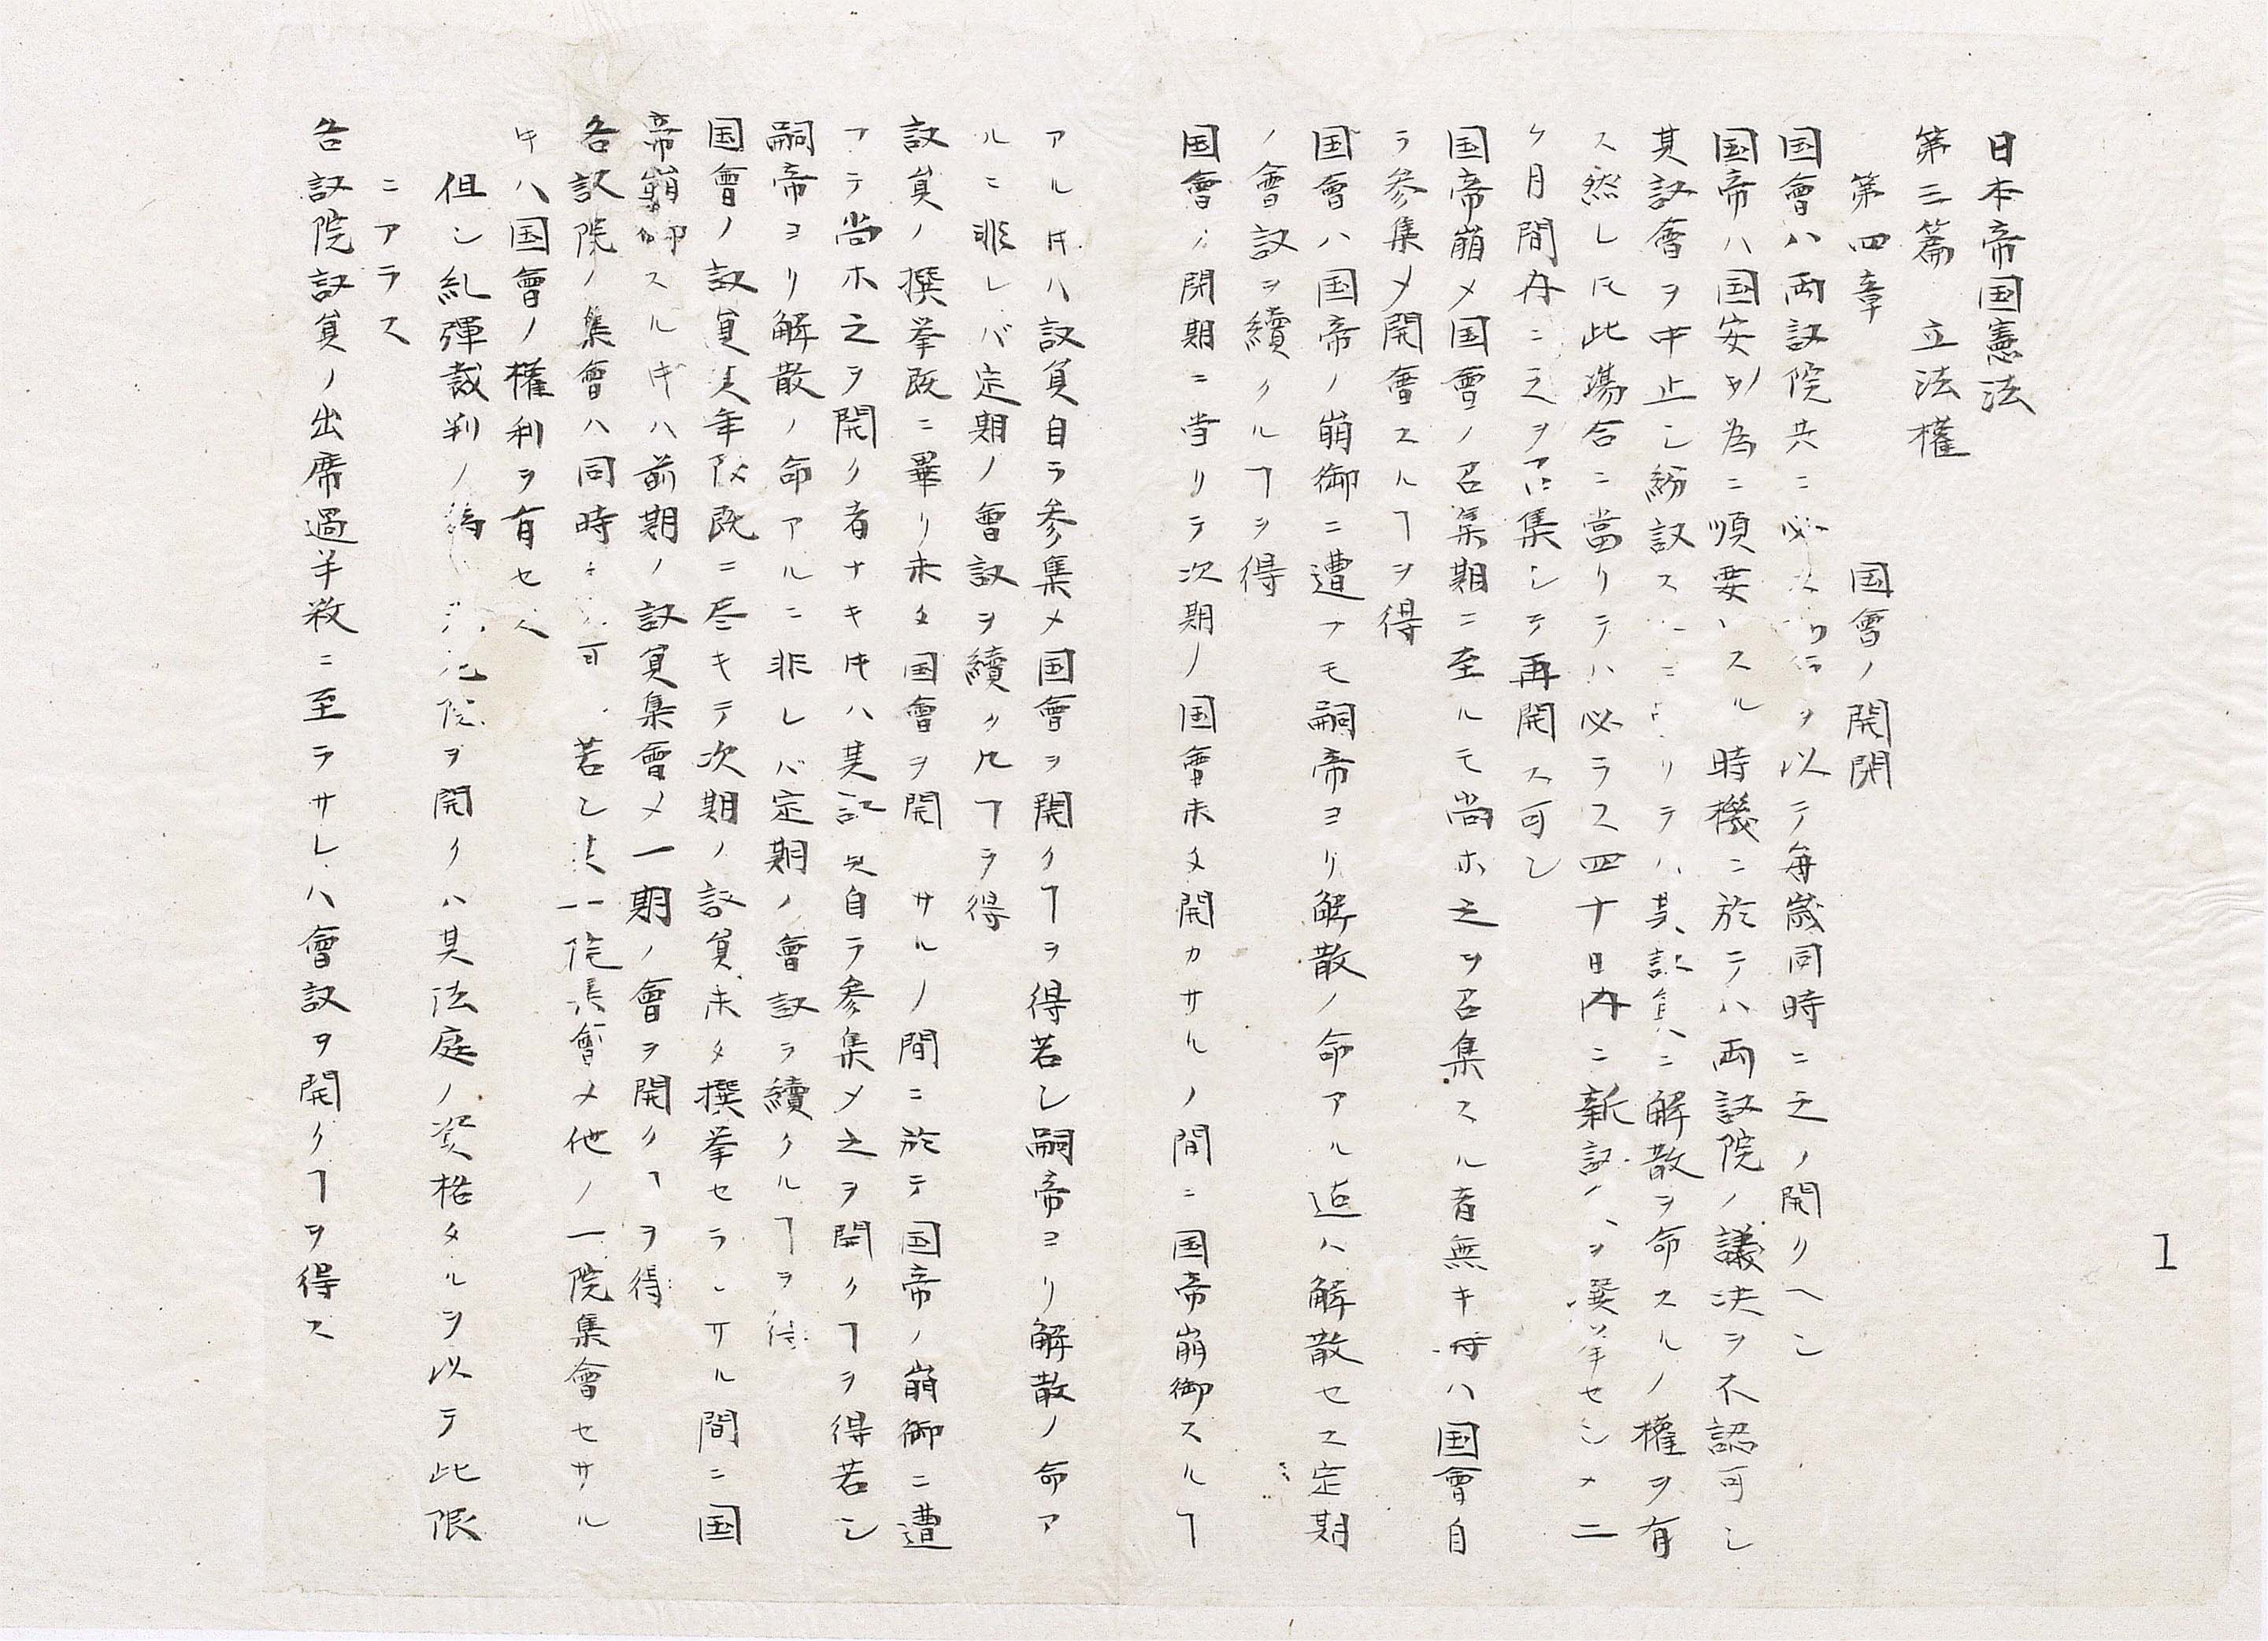 日本帝国憲法
第三篇　立法權
第四章　国會ノ開閉
国會ハ両議院共ニ必ス ヲ以テ毎歳同時ニ之ノ開クヘシ
国帝ハ国安ノ為ニ順要トスル時機ニ於テハ両議院ノ議決ヲ不認可シ
其議會ヲ中止シ紛議ス リテハ其議員ニ解散ヲ命スルノ權ヲ有
ス然レ𪜈此場合ニ當リテハ必ラス四十日内ニ新議 ヲ選挙セシメ二
ケ月間内ニ之ヲ召集シテ再開ス可シ
国帝崩メ国會ノ召集期ニ至ルモ尚ホ之ヲ召集スル者無キ時ハ国會自
ラ参集メ開會スルヿヲ得
国會ハ国帝ノ崩御ニ遭フモ嗣帝ヨリ解散ノ命アル迄ハ解散セス定期
ノ會議ヲ續クルヿヲ得
国會ノ閉期ニ当リテ次期ノ国會未タ開カサルノ間ニ国帝崩御スルヿ
アル𪜈ハ議員自ラ参集メ国會ヲ開クヿヲ得若シ嗣帝ヨリ解散ノ命ア
ルニ非レバ定期ノ會議ヲ續クルヿヲ得
議員ノ撰挙既ニ畢リ未タ国會ヲ開 サルノ間ニ於テ国帝ノ崩御ニ遭
フテ尚ホ之ヲ開ク者ナキキハ其議員自ラ参集メ之ヲ開クヿヲ得若シ
嗣帝ヨリ解散ノ命アルニ非レバ定期ノ會議ヲ續クルヿヲ得
国會ノ議員其年限既ニ尽キテ次期ノ議員未タ撰挙セラレサル間ニ国
帝崩御スルキハ前期ノ議員集會メ一期ノ會ヲ開クヿヲ得
各議院ノ集會ハ同時ニ 可 若シ其一院集會メ他ノ一院集會セサル
キハ国會ノ權利ヲ有セス
但シ糺彈裁判ノ為 元 院ヲ開クハ其法庭ノ資格タルヲ以テ此限
ニアラス
各議院議員ノ出席過半数ニ至ラサレハ會議ヲ開クヿヲ得ス
1